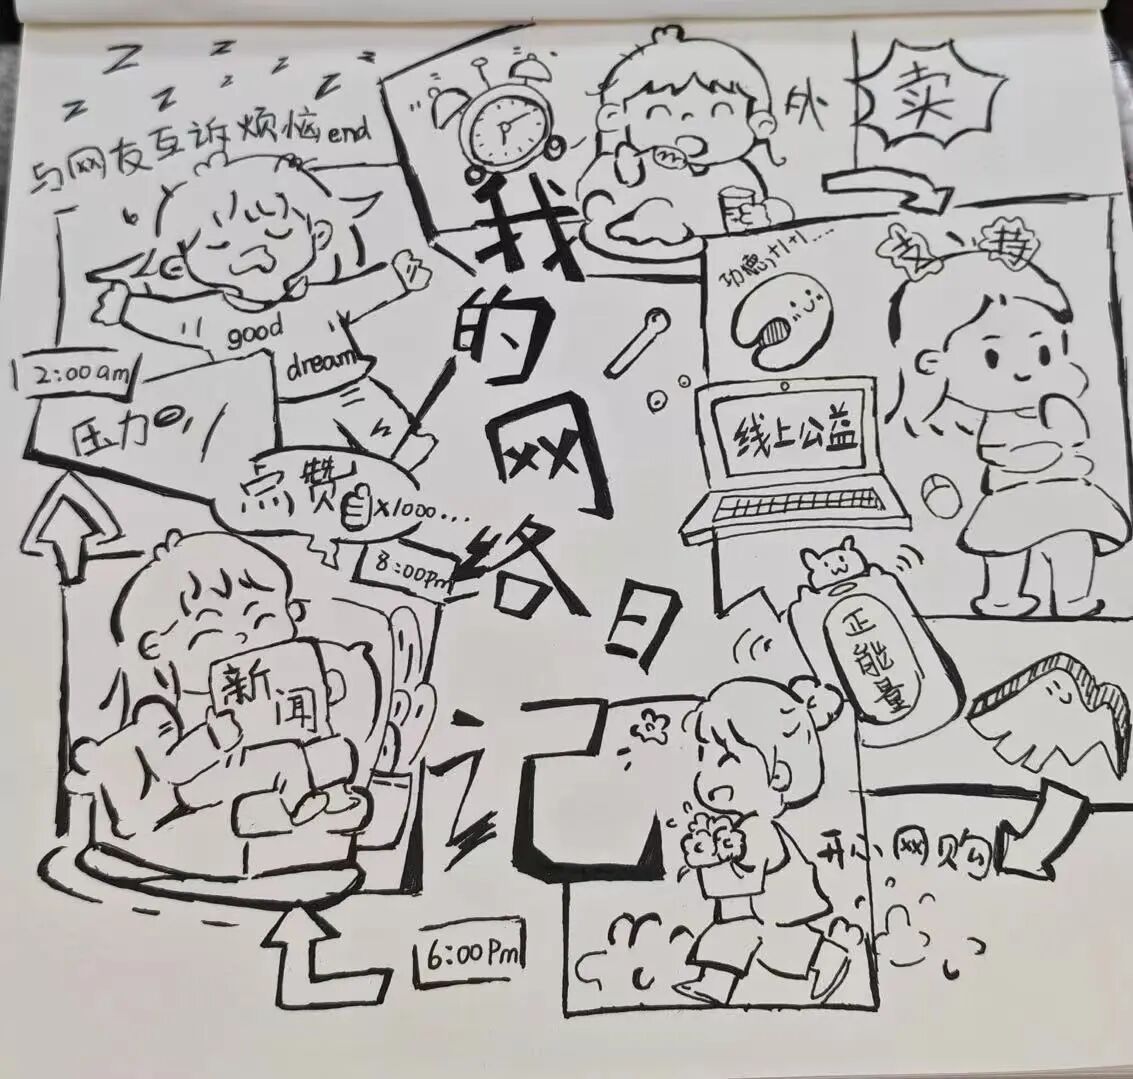 我的网络日记
外卖
支持
功德+1+1+1.....
线上公益
正能量
开心网购
6:00Pm
新闻
8:00Pm
点赞
x1000...
压力
2:00am
good
dream
与网友互诉烦恼end
z z z z z z z z z